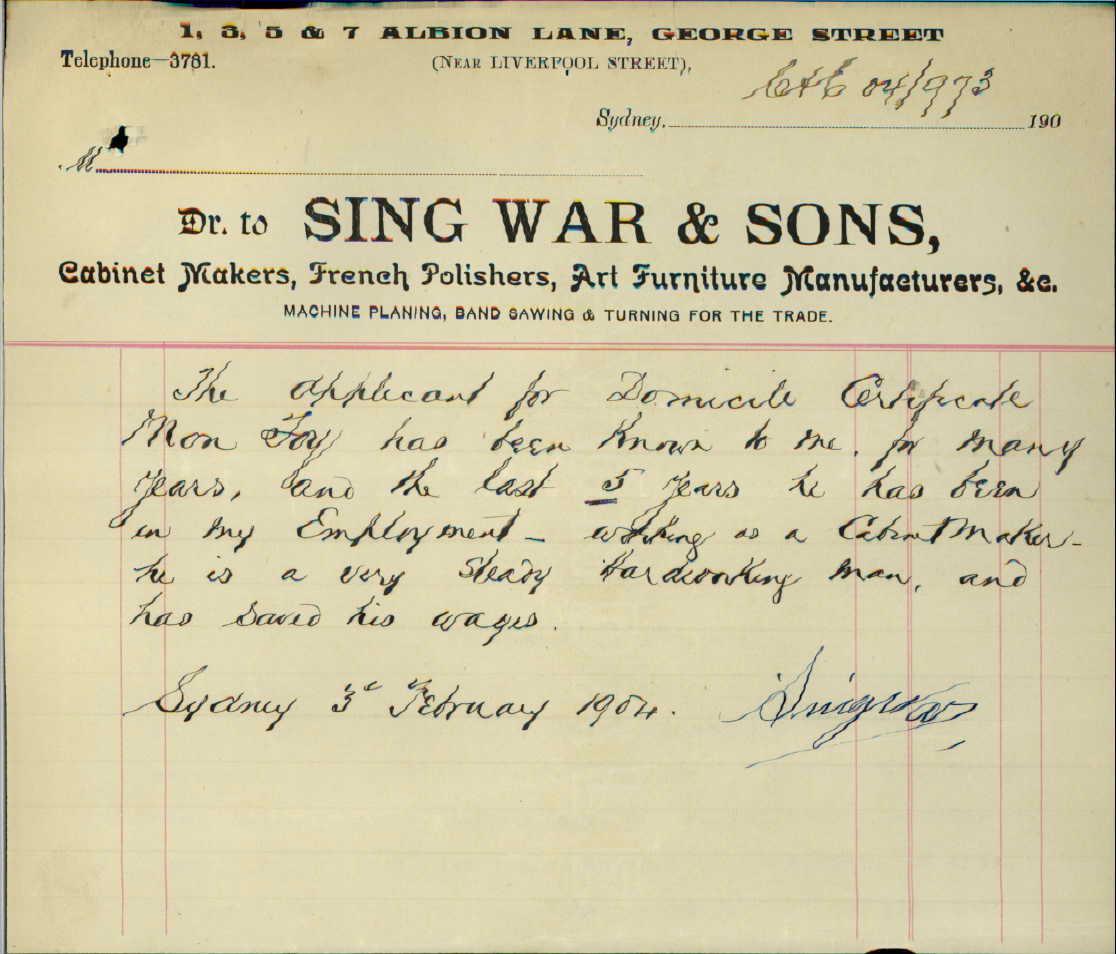 1, 3, 5 & 7 ALBION LANE, GEORGE STREET
Telephone—3781.
(NEAR LIVERPOOL STREET),
C & E 04/973
Sydney, 190
M
Dr. to SING WAR & SONS,
Cabinet Makers, French Polishers, Art Furniture Manufacturers, &c.
MACHINE PLANING, BAND SAWING & TURNING FOR THE TRADE.
The applicant for Domicile Certificate
Mon Foy has been known to me, for many
years, and the last 5 years he has been
in my Employment – working as a Cabinet Maker –
he is a very steady Hardworking man, and
has saved his wages.
Sydney 3d February 1904. Singwar